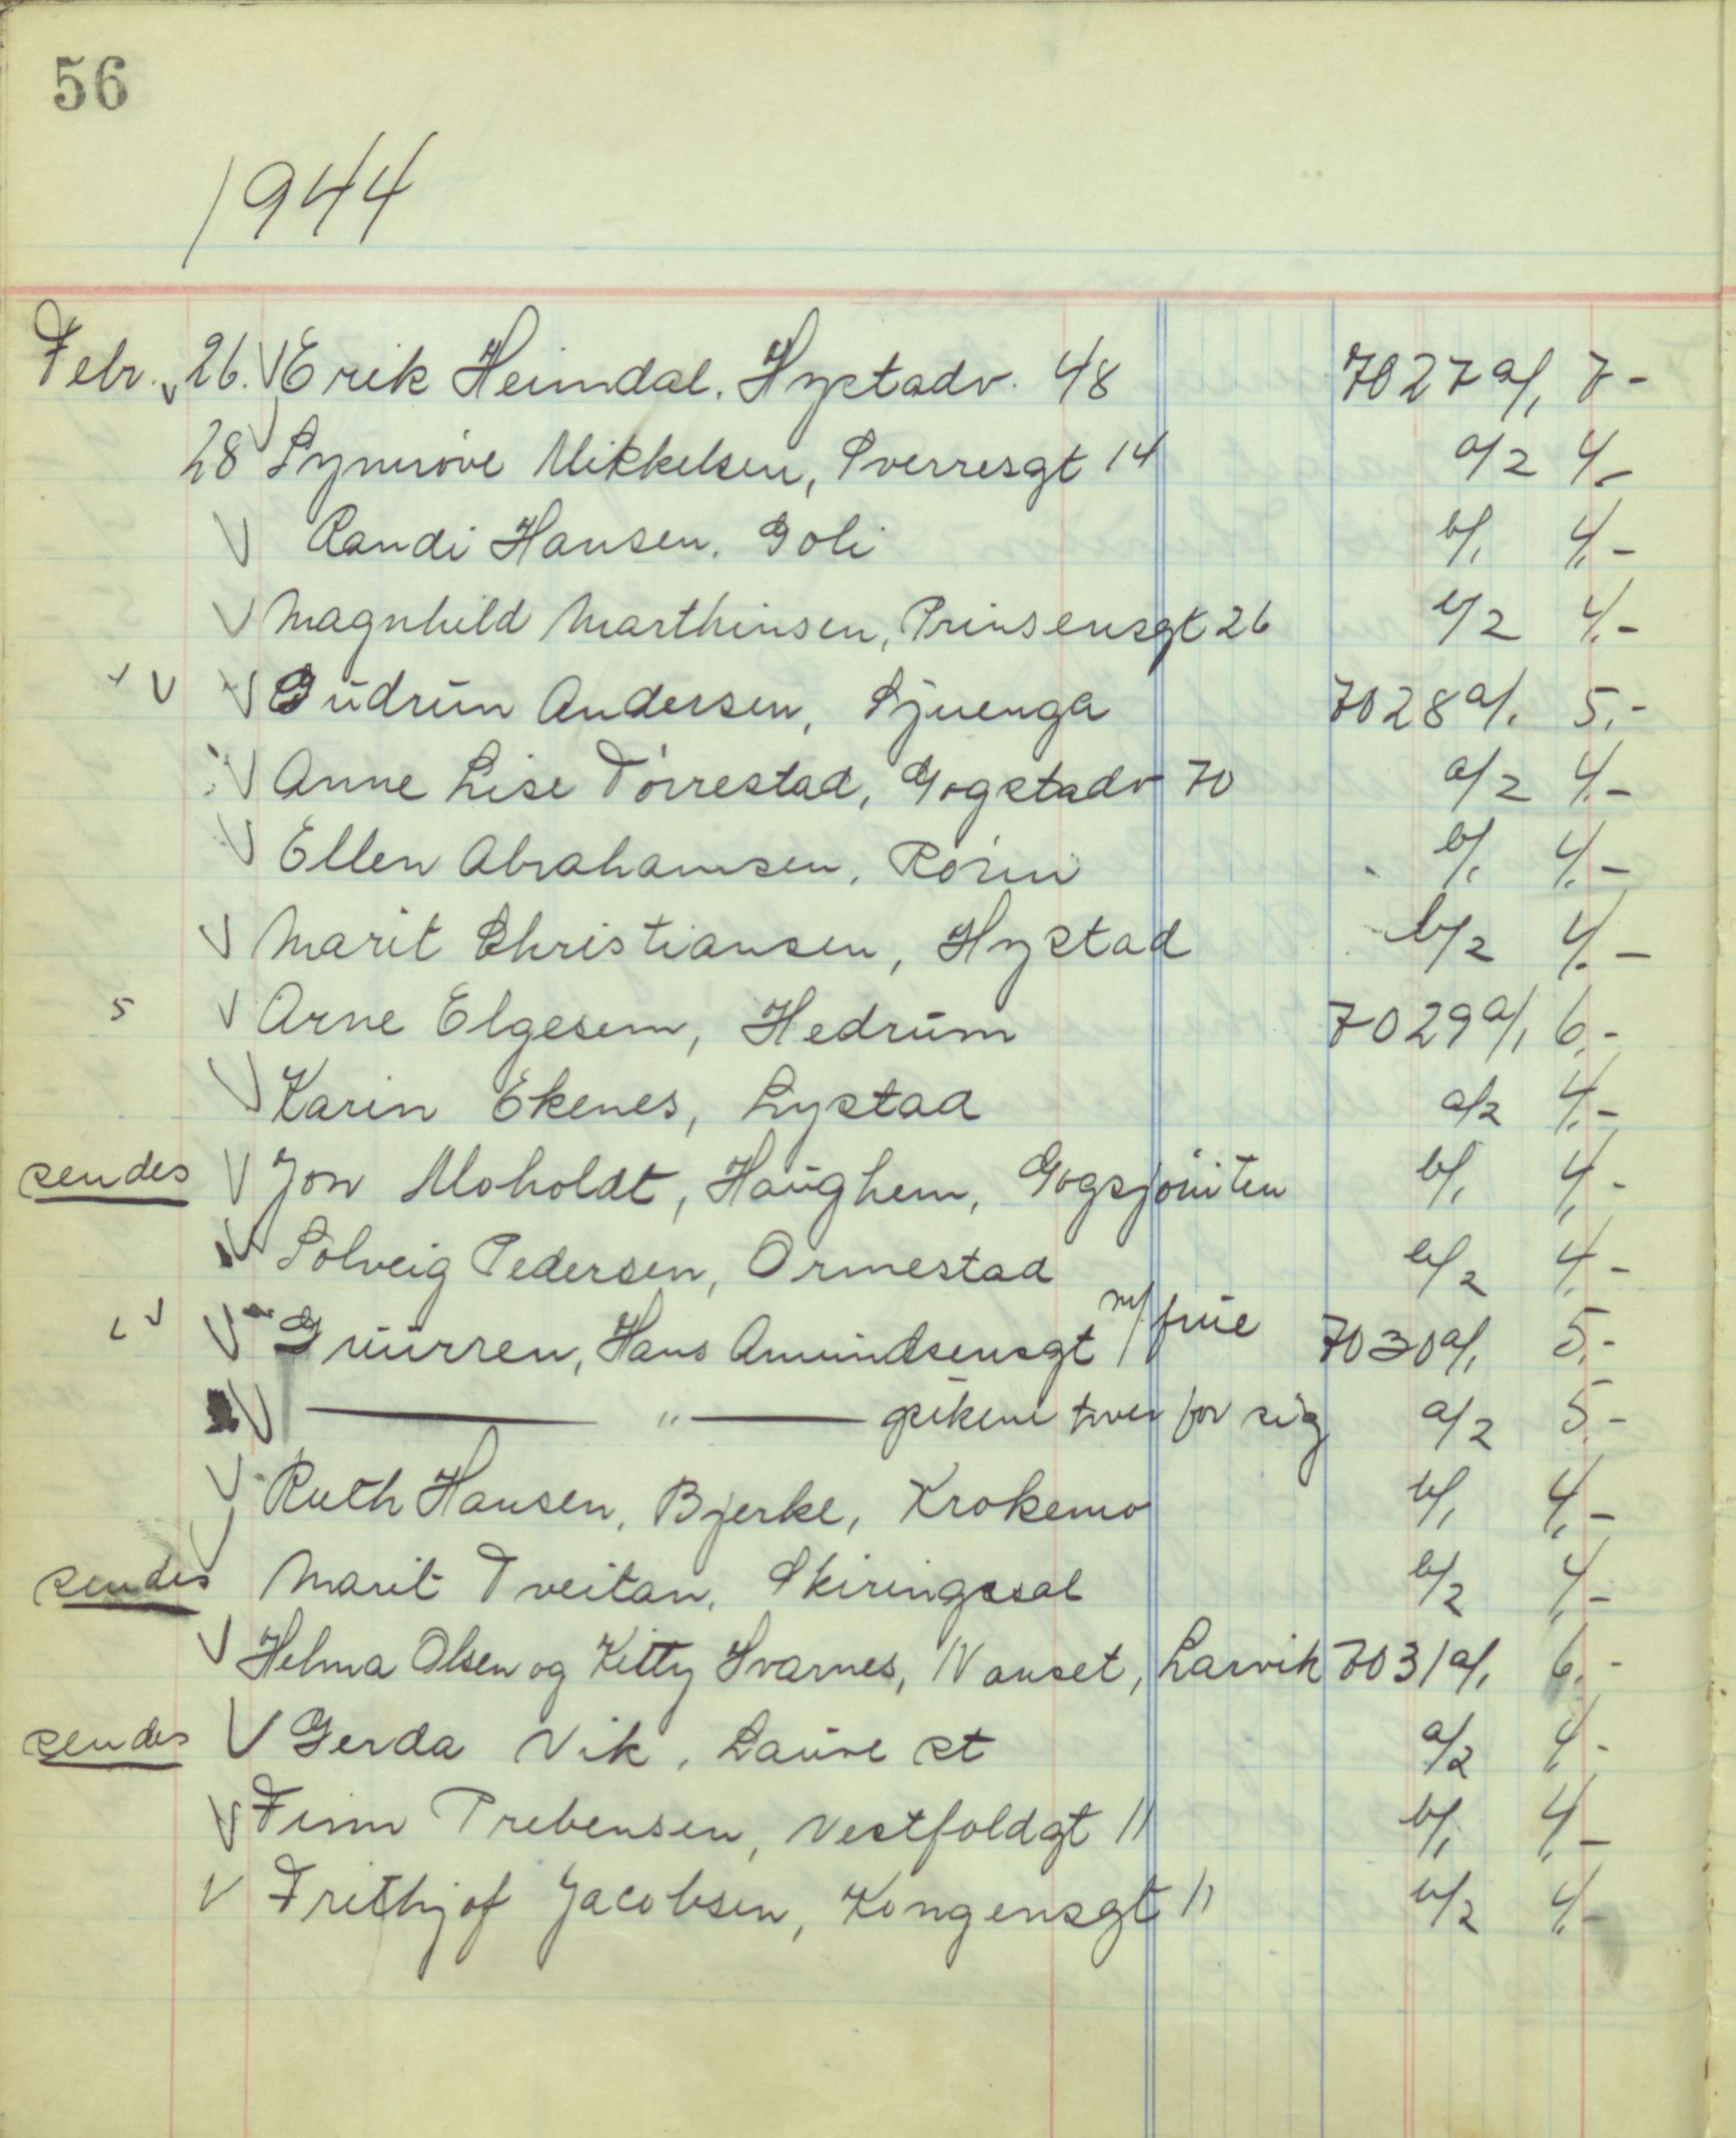 56
1944
Febr. 26. Erik Heimdal. Hystadv. 48 7027 a/1 7-
28 Synnøve Mikkelsen, Sverresgt 14 a/2 4.-
Randi Hansen. Goli b/1 4.-
Magnhild Marthinsen, Prinsensgt 26 b/2 4.-
Gudrun Andersen, Sjuenga 7028 a/1 5.-
Anne Lise Tørrestad, Gogstadv 70 a/2 4.-
Ellen Abrahamsen, b/1 4.-
Marit Christiansen, Hystad b/2 4.-
5 Arne Elgesem, Hedrum 7029 a/1 6.-
Karin Ekenes, Lystad a/2 4.-
sendes Jon Moholdt, Haughem, b/1 4.-
Solveig Pedersen, Ormestad b/2 4.-
Hans Amundsensgt m/ frue 7030 a/1 5.-
" for sig a/2 5.-
Ruth Hansen, Bjerke, Krokemo b/1 4.-
sendes Marit Tveitan, Skiringssal b/2 4.-
Helma Olsen og Kitty Hvarnes, Nanset, Larvik 7031 a/1 6.-
sendes Gerda Vik, Lauve st a/2 4.-
Finn Prebensen, Vestfoldgt 11 b/1 4.-
Frithjof Jacobsen, Kongensgt 11 b/2 4.-